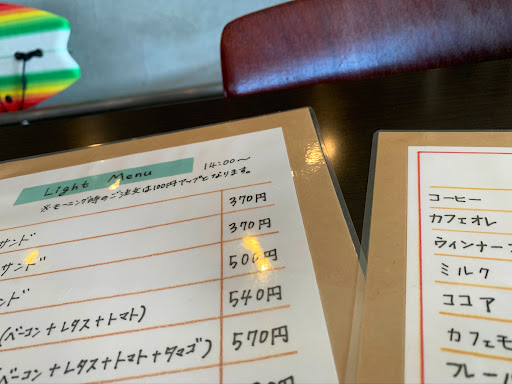 Light Menu 14:00〜
※モーニング時のご注文は100円アップとなります。
サンド 370円
サンド 370円
ンド 500円
(ベーコン+レタス+トマト) 540円
(ベーコン+レタス+トマト+タマゴ) 570円
コーヒー
カフェオレ
ウィンナー
ミルク
ココア
カフェモ
フレー